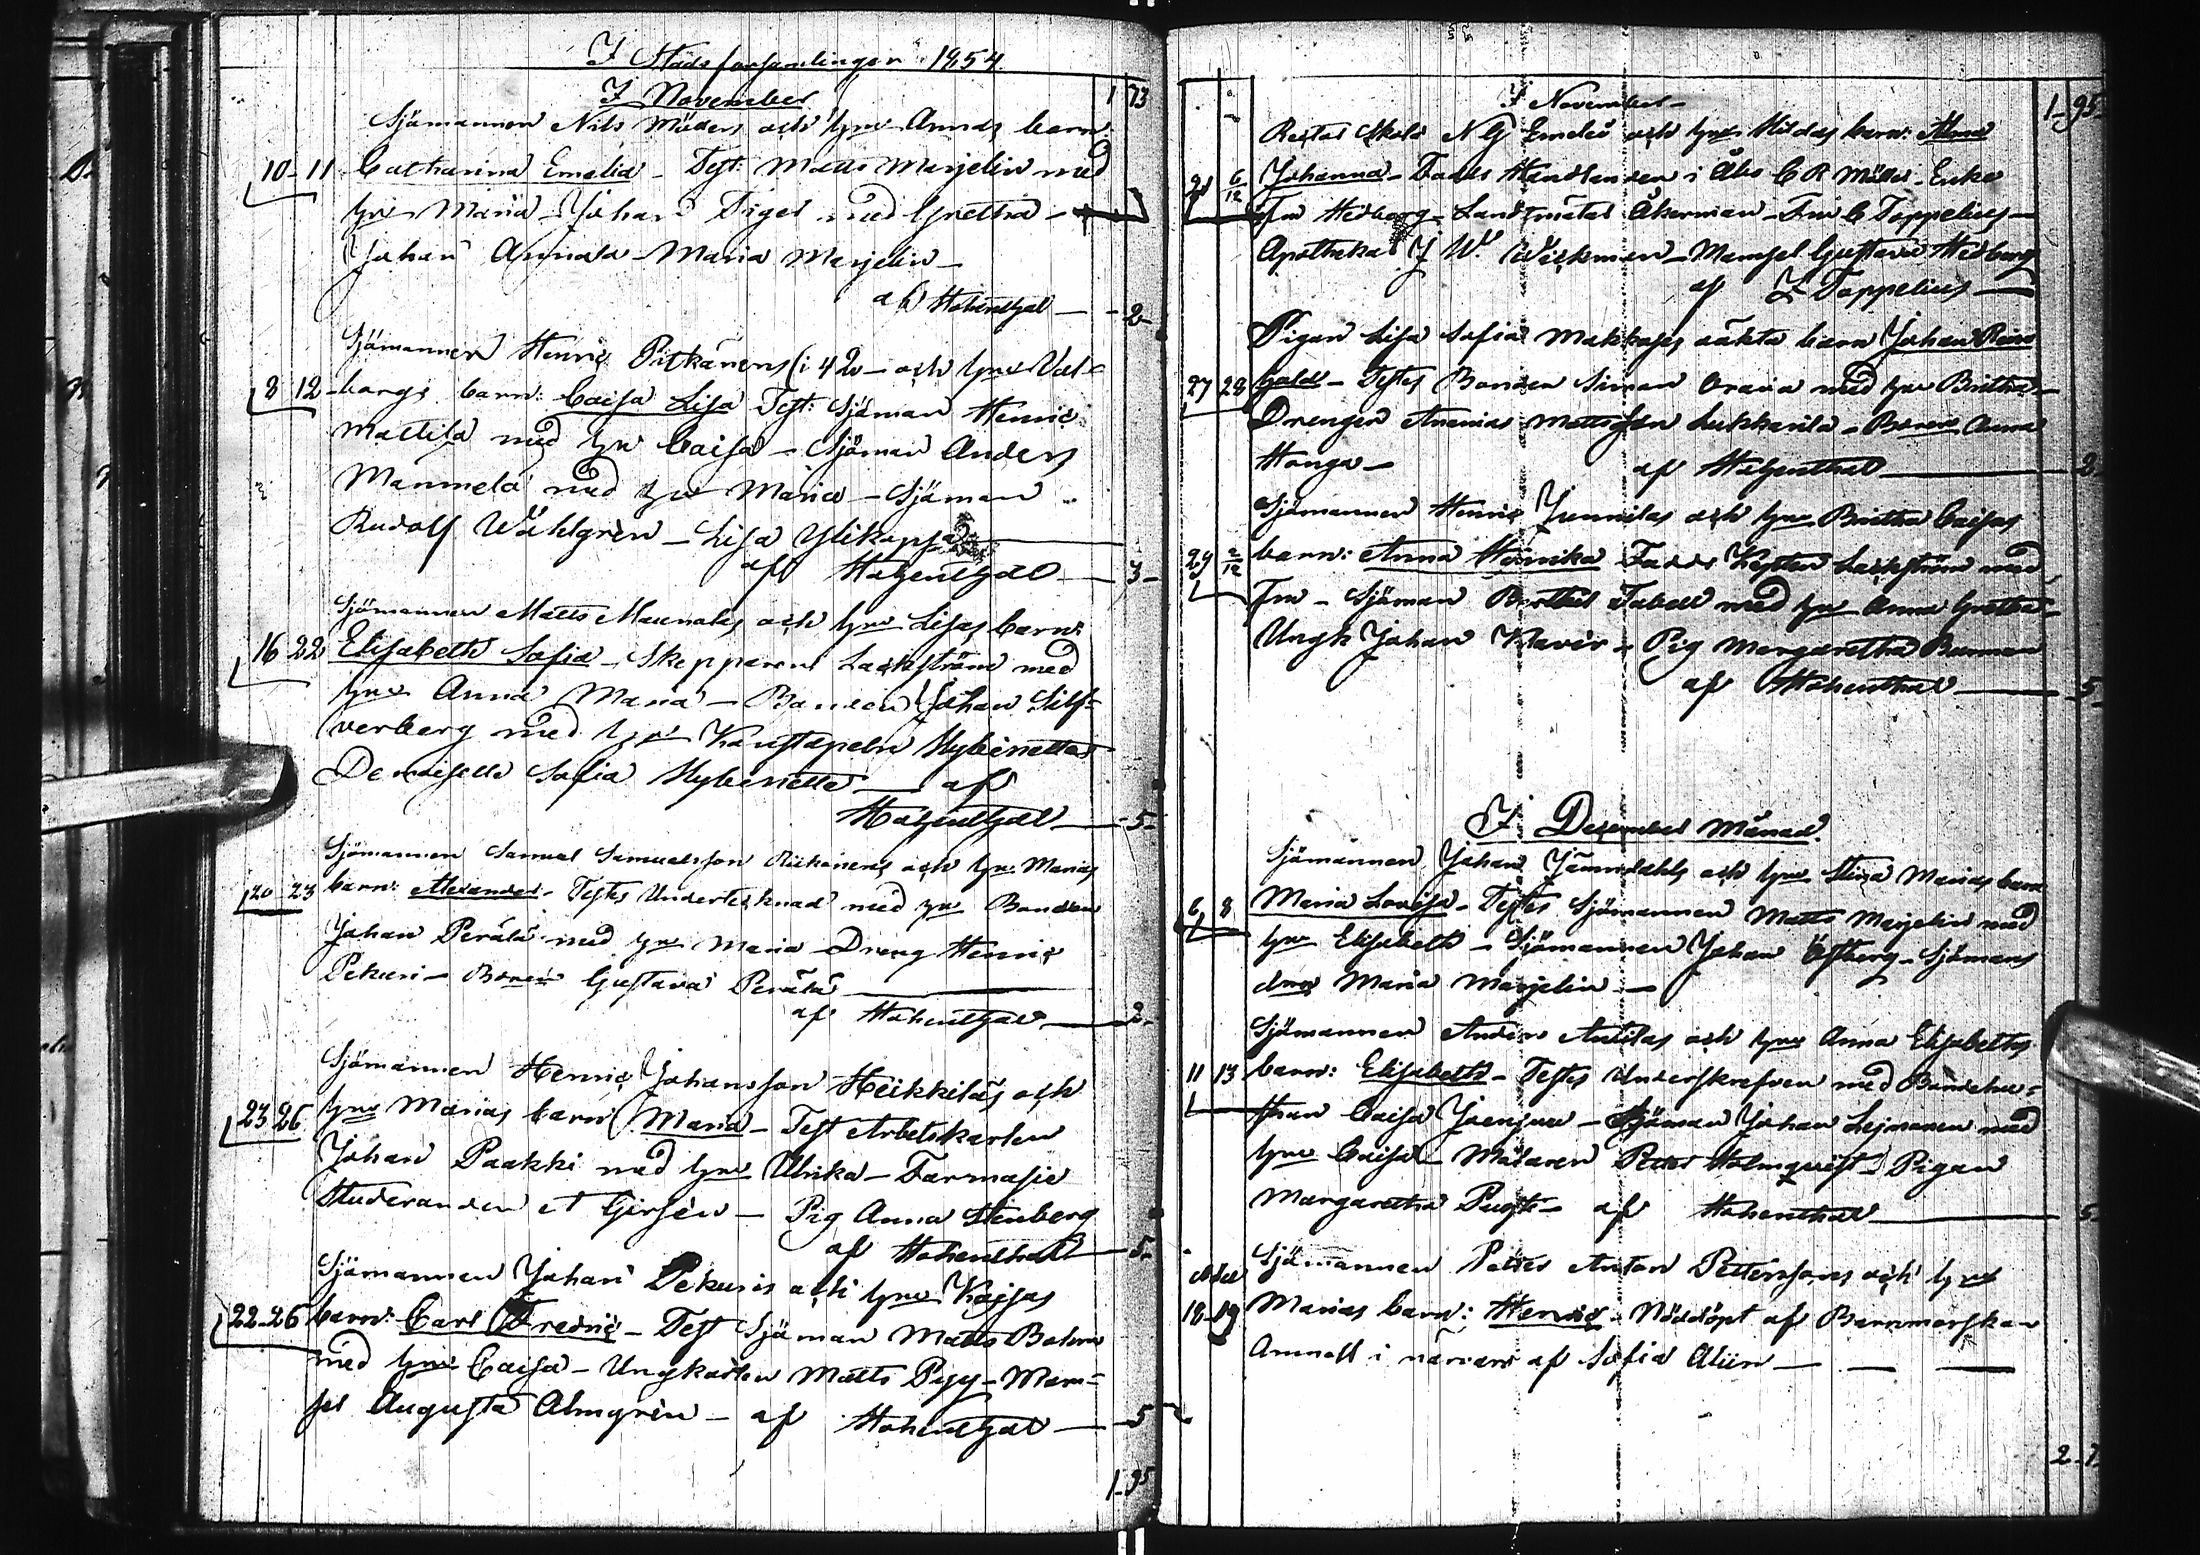 I Stads församlingen 1854.
I November
1 73
Sjömannen Nils Möders och hu Annas barn:
10-11 Catharina Emelia - Test: Matts Marjelin med
hu Maria - Johan Tiger med Gretha -
Johan Annala - Maria Marjelin -
af Hohenthal - 2 -
Sjömannen Henric Pitkänens (i 42 - och hu Val-
8 12 borgs barn: Caisa Lisa Test: Sjöman Henric
Mattila med hu Caisa - Sjöman Anders
Mannela med hu Maria - Sjöman
Rudolf Wåhlgren - Lisa Ylikoppa
af Hohenthal - 3 -
Sjömannen Matts Maunolas och hu Lisas barn:
16 22 Elisabeth Sofia - Skepparen Lackström med
hu Anna Maria - Bonden Johan Silf-
verberg med hu Konstapeln Hybinette
Demoiselle Sofia Hybinette - af
Hohenthal - 5 -
Sjömannen Samuel Samuelsson och hu Marias
20 23 barn: Alexander - Testes Undertecknad med hu Bonden
Johan Perälä med hu Maria - Dreng Henric
Pekuri - Gustava Perälä
af Hohenthal - 2 -
Sjömannen Henric Johansson Heikkiläs och
23 26 hu Marias barn Maria - Test Arbetskarlen
Johan Paakki med hu Ulrika - Farmasie
Studeranden A Girsén - Pig Anna Stenberg
af Hohenthal - 5 -
Sjömannen Johan Pekuris och hu Kaisas
22-26 barn: Carl Fredric - Test Sjöman Matts Bohm
med hu Caisa - Ungkarlen Matts Pyy - Mam-
sel Augusta Almgrén - af Hohenthal - 5
1-95
I November -
1-95
N G Emeleé och hu Hildas barn: Alma
21 6/12 Johanna - Faddr Handlanden i Åbo C R Möller - Enke
Fru Hedberg - Landtmätar Åkerman - Fru C Toppelius -
Apothekar J W. Wickman - Mamsel Gustava Hedberg
af Z Toppelius -
Pigan Lisa Sofia Makkoses oäkta barn Johan Rein
27 28 hold - Testes Bonden Simon Orava med hu Britha -
Drengen Ananias Mattsson Lukkarila - Anna
Honga - af Hohenthal 2
Sjömannen Henric Junnilas och hu Britha Caisas
29 2/12 barn: Anna Henrika Faddr Lackström med
Fru - Sjöman Berthel Tabell med hu Anna Gretha
Ungk Johan Klavér - Pig Margaretha
af Hohenthal 5
I December Månad.
Sjömannen Johan och hu Stina Marias barn
6 8 Maria Lovisa - Testes Sjömannen Matts Marjelin med
hu Elisabeth - Sjömannen Johan Östberg - Sjömans
Maria Marjelin -
Sjömannen Anders Anttilas och hu Anna Elisabeths
11 13 barn: Elisabeth - Testes Underskrefven med Bondehu-
strun Caisa - Sjöman Johan med
hu Caisa - Målaren Petter Holmqvist - Pigan
Margaretha - af Hohenthal 5
Sjömannen Petter Anton Petterssons och hu
18-19 Marias barn: Henric - Nöddöpt af Barnmorskan
Ammell i närvaro af Sofia Alén -
2-